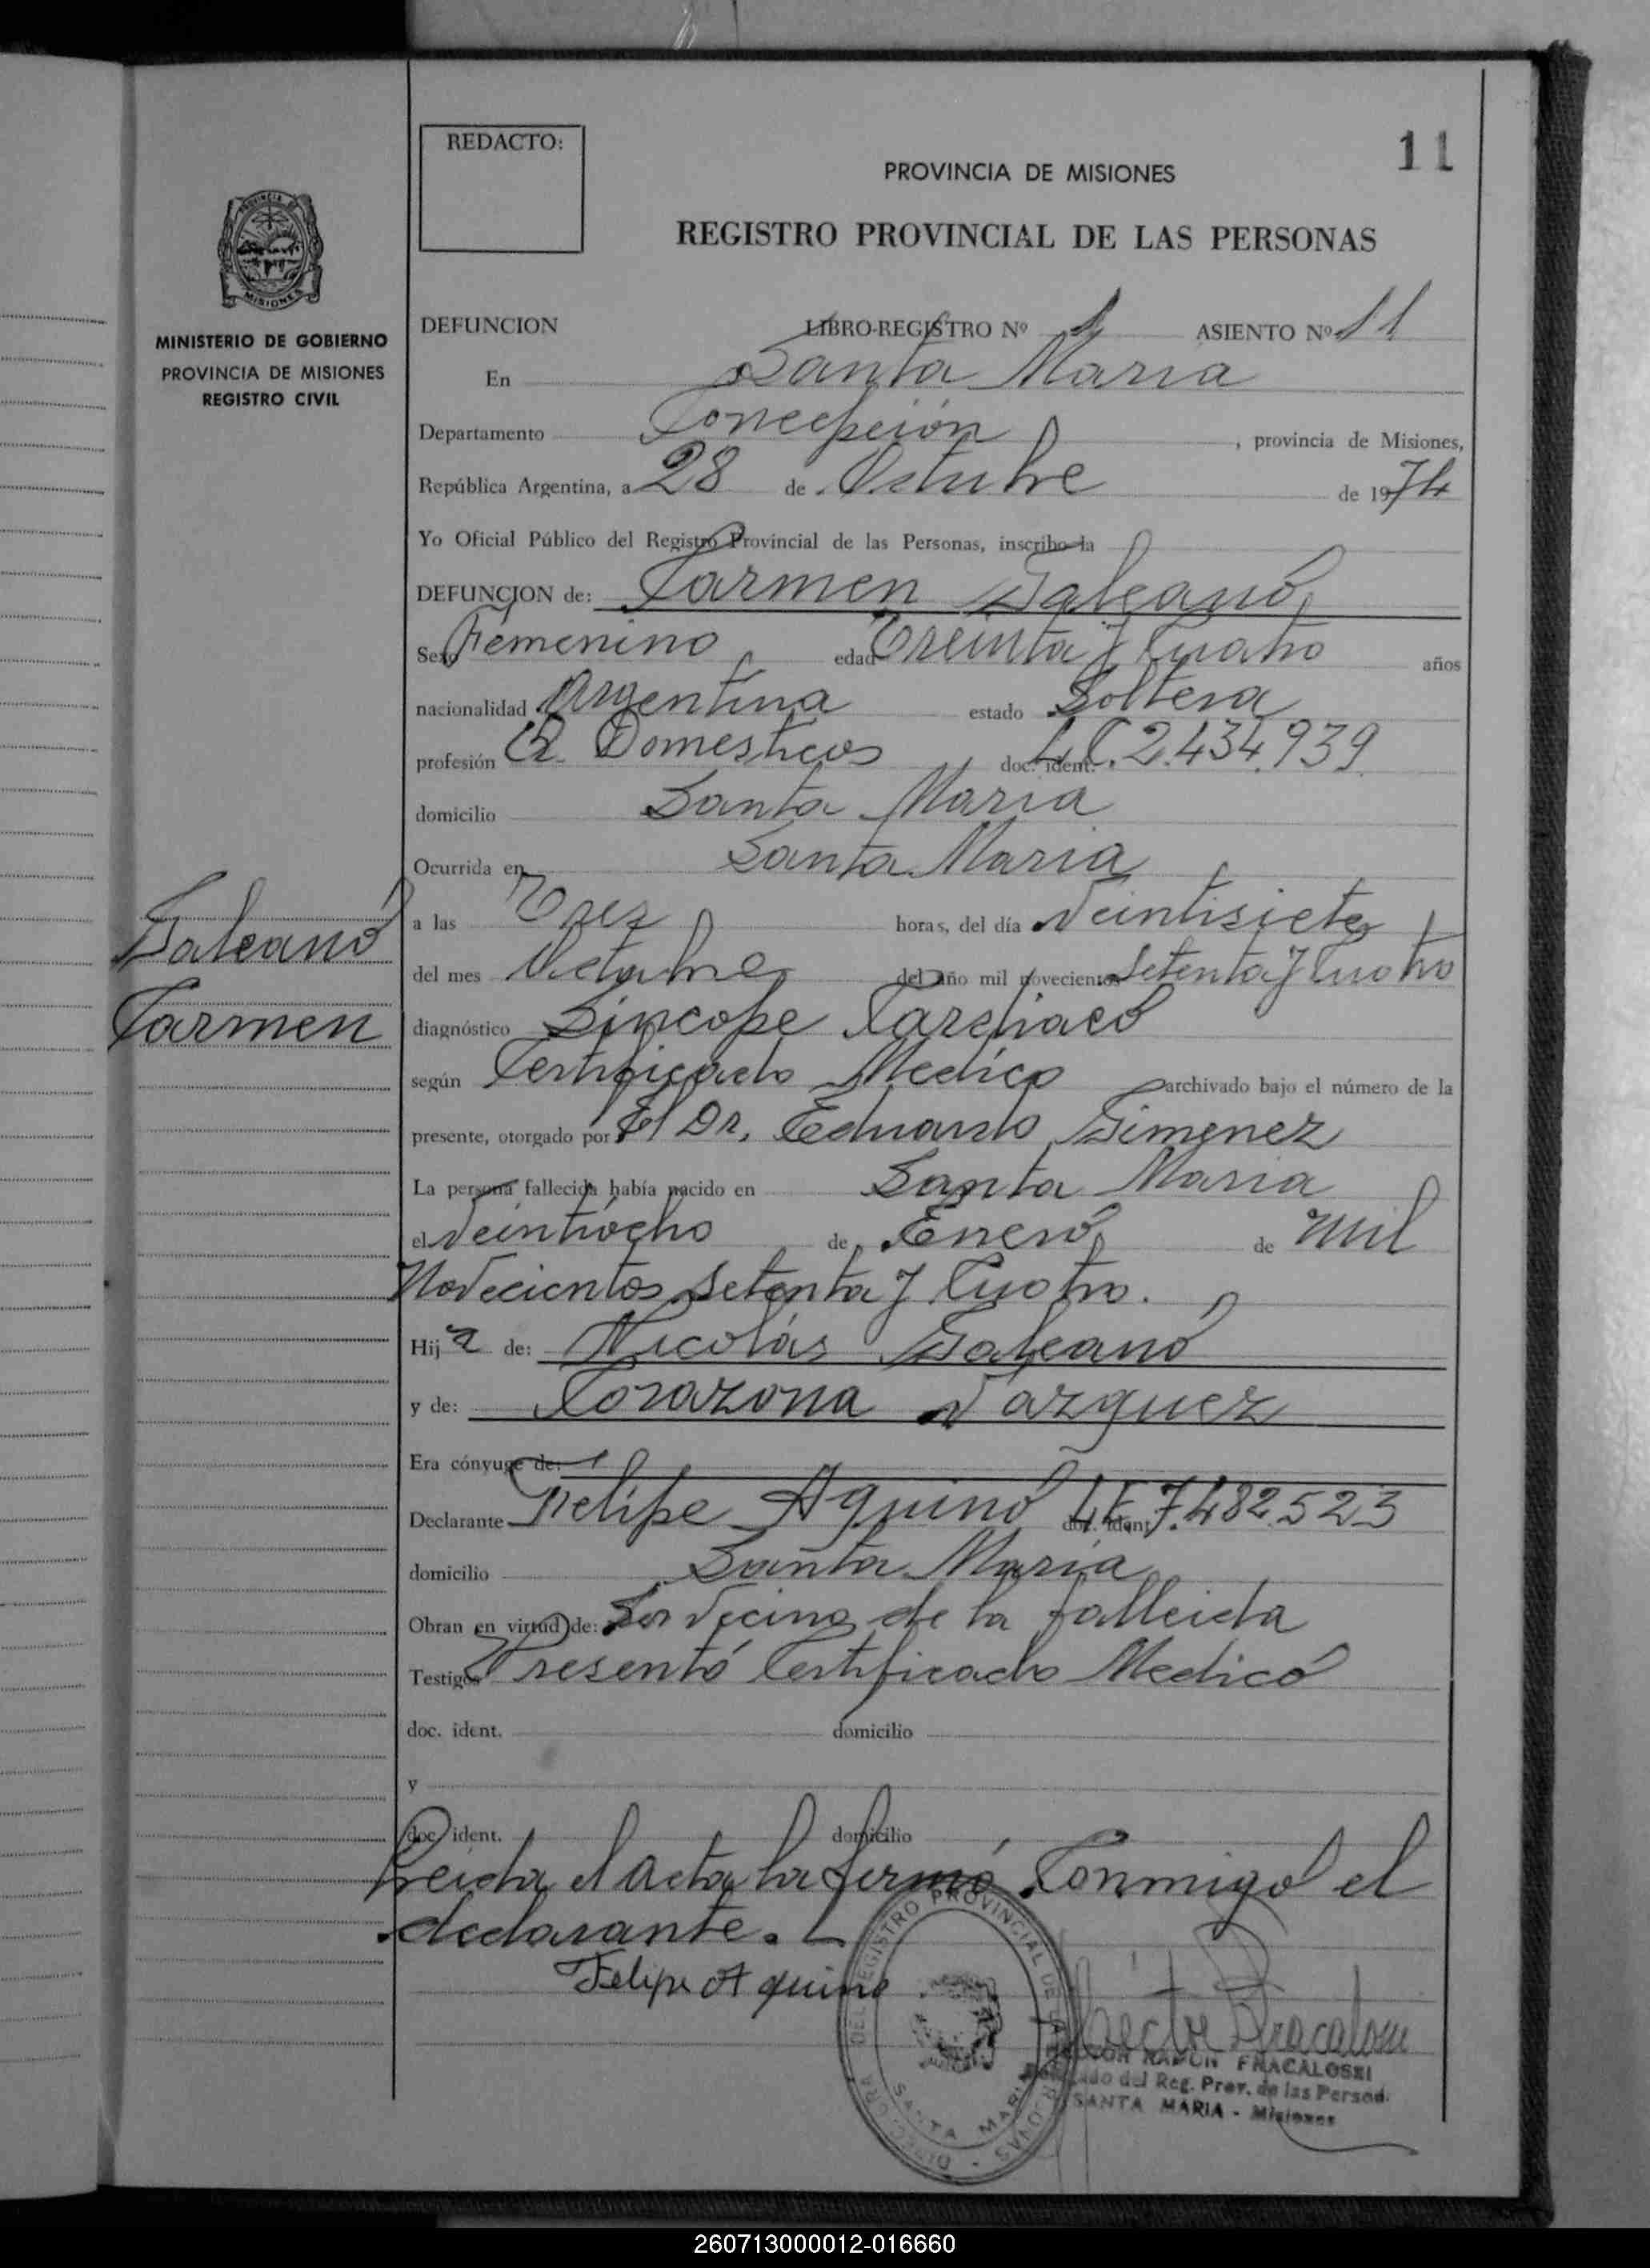 11
REDACTO:
PROVINCIA DE MISIONES
REGISTRO PROVINCIAL DE LAS PERSONAS
MISIONES
MINISTERIO DE GOBIERNO
PROVINCIA DE MISIONES
REGISTRO CIVIL
DEFUNCION LIBRO-REGISTRO Nº 1 ASIENTO Nº 11
En Santa Maria
Departamento Concepción, provincia de Misiones,
República Argentina, a 28 de Octubre de 1974
Yo Oficial Público del Registro Provincial de las Personas, inscribo la
DEFUNCION de: Carmen Galeano
Sexo Femenino edad Treinta y Cuatro años
nacionalidad Argentina estado Soltera
profesión Q. Domesticos doc. ident. L.C. 2.434.939
domicilio Santa Maria
Ocurrida en Santa Maria
a las Trez horas, del día Veintisiete
del mes Octubre del año mil novecientos Setenta y Cuatro
Galeano
Carmen
diagnóstico Sincope Cardiaco
según Certificado Medico archivado bajo el número de la
presente, otorgado por El Dr. Eduardo Gimenez
La persona fallecida había nacido en Santa Maria
el Veintiocho de Enero de Mil
Novecientos Setenta y Cuatro.
Hija de: Nicolás Galeano
y de: Corazona Vazquez
Era cónyuge de:
Declarante Felipe Aquino doc. ident. L.E. 7.482.523
domicilio Santa Maria
Obran en virtud de: Ser Vecino de la falleida
Testigos Presentó Certificado Medico
doc. ident. domicilio
y
doc. ident. domicilio
Leida el Acta la firmó Conmigo el
declarante.
Felipe Aquino
DIRECC. GRAL. DEL REGISTRO PROVINCIAL DE LAS PERSONAS
SANTA MARIA
HECTOR RAMON FRACALOSSI
del Reg. Prov. de las Person.
SANTA MARIA - Misiones
260713000012-016660